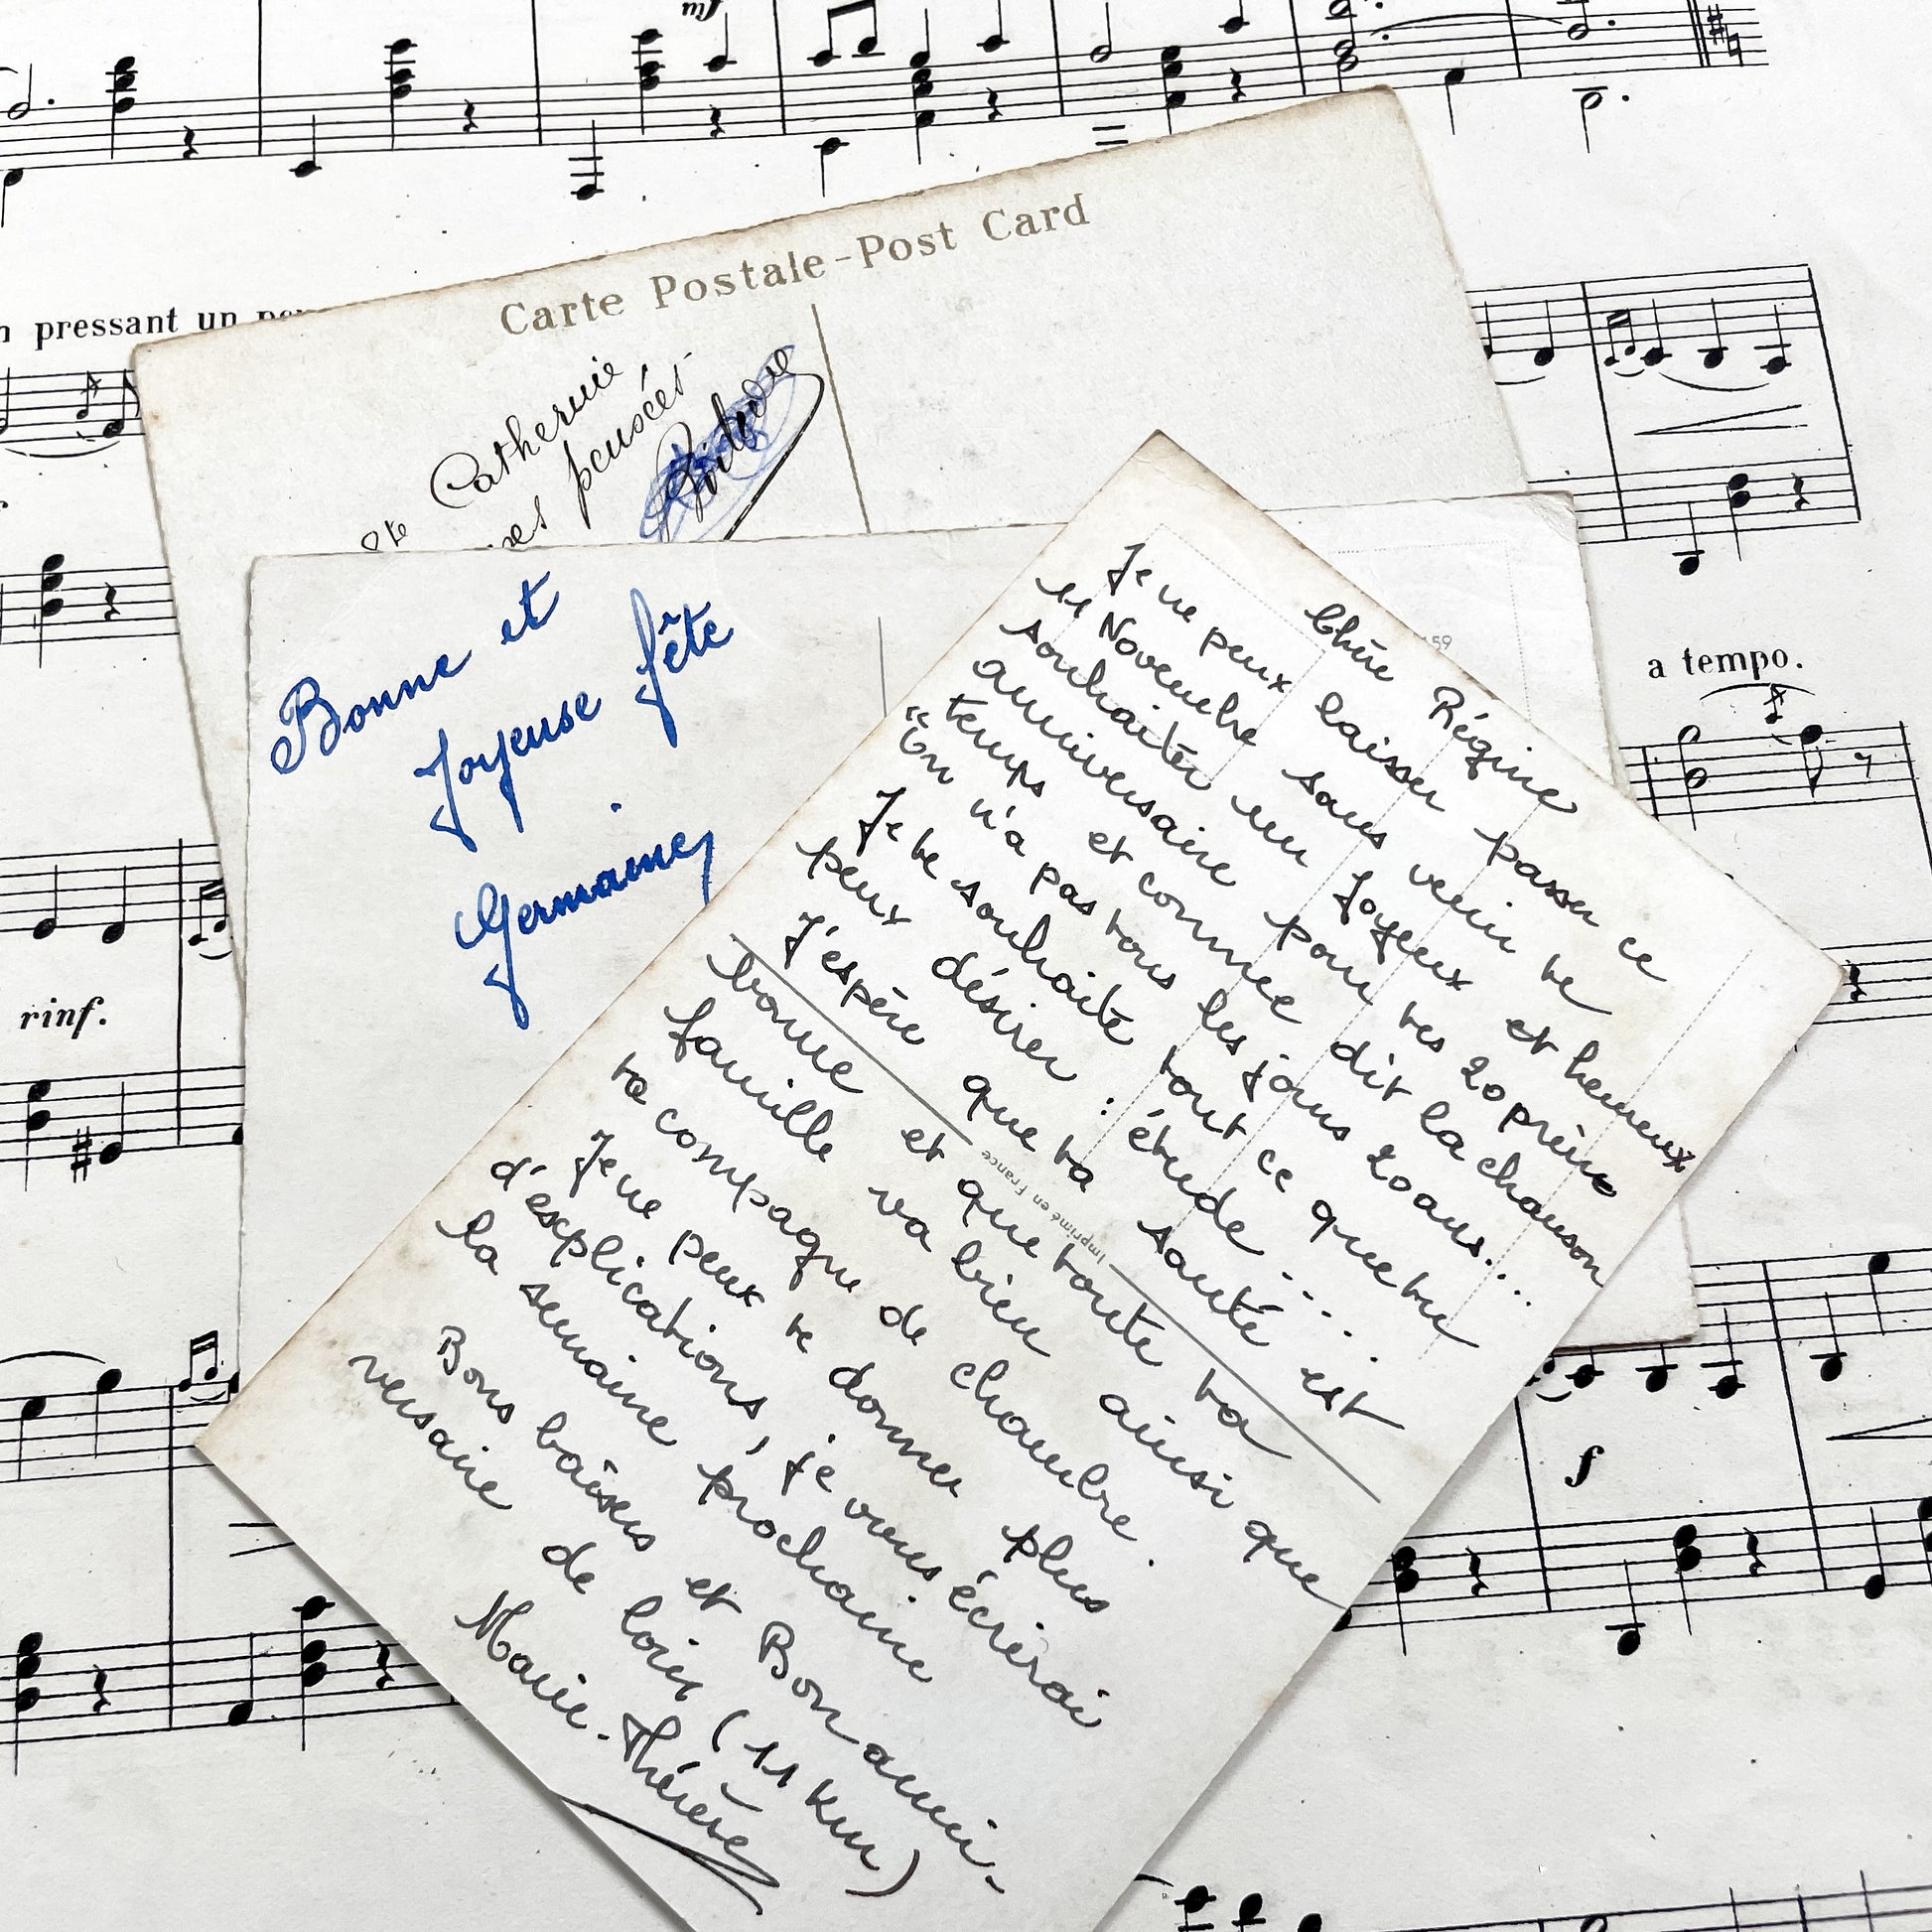 pressant un
Carte Postale-Post Card
Catherine
pensées
Bonne et
Joyeuse fête
Germaine
159
a tempo.
rinf.
f
Chère Régine
Je ne peux laisser passer ce
11 Novembre sans venir te
souhaiter un Joyeux et heureux
anniversaire pour tes 20 printemps
temps et comme dit la chanson
"On n'a pas tous les jours 20 ans...
Je te souhaite tout ce que tu
peux désirer : étude ....
J'espère que ta santé est
bonne et que toute ta
famille va bien ainsi que
ta compagne de chambre.
Je ne peux te donner plus
d'explications, je vous écrirai
la semaine prochaine
Bons baisers et Bon anni-
versaire de loin (11 km)
Marie-Thérèse
Imprimé en France